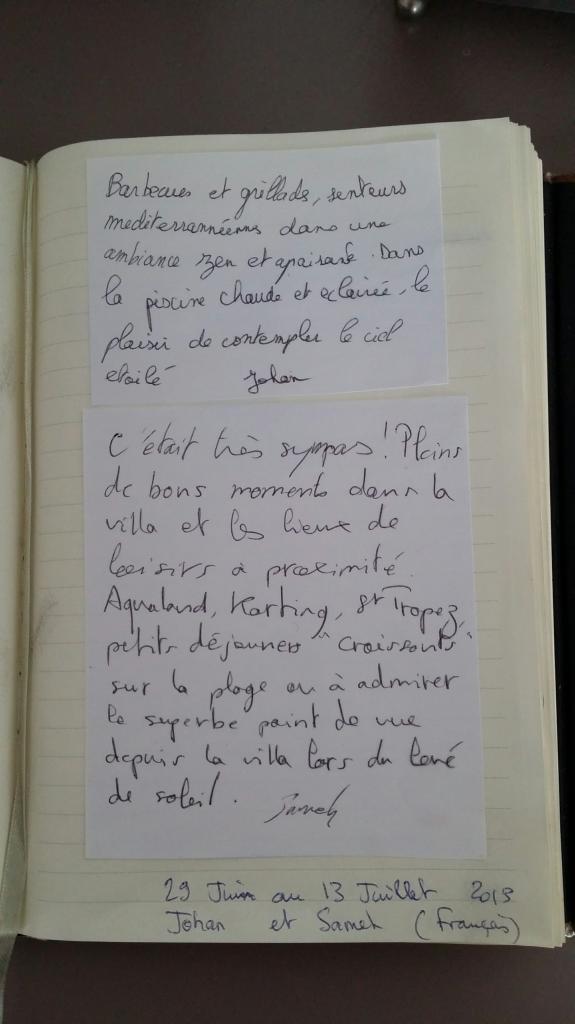 Barbecues et grillads, senteurs
mediterrannéenns dans une
ambiance zen et apaisante. Dans
la piscine chaude et eclairée, le
plaisir de contempler le ciel
etoilé Johan
C'était très sympas ! Pleins
de bons moments dans la
villa et les lieux de
loisirs à proximité.
Aqualand, Karting, St Tropez,
petits déjeuners "croissants"
sur la plage ou à admirer
le superbe point de vue
depuis la villa lors du levé
de soleil. Sameh
29 Juin au 13 Juillet
Johan et Sameh (Français)